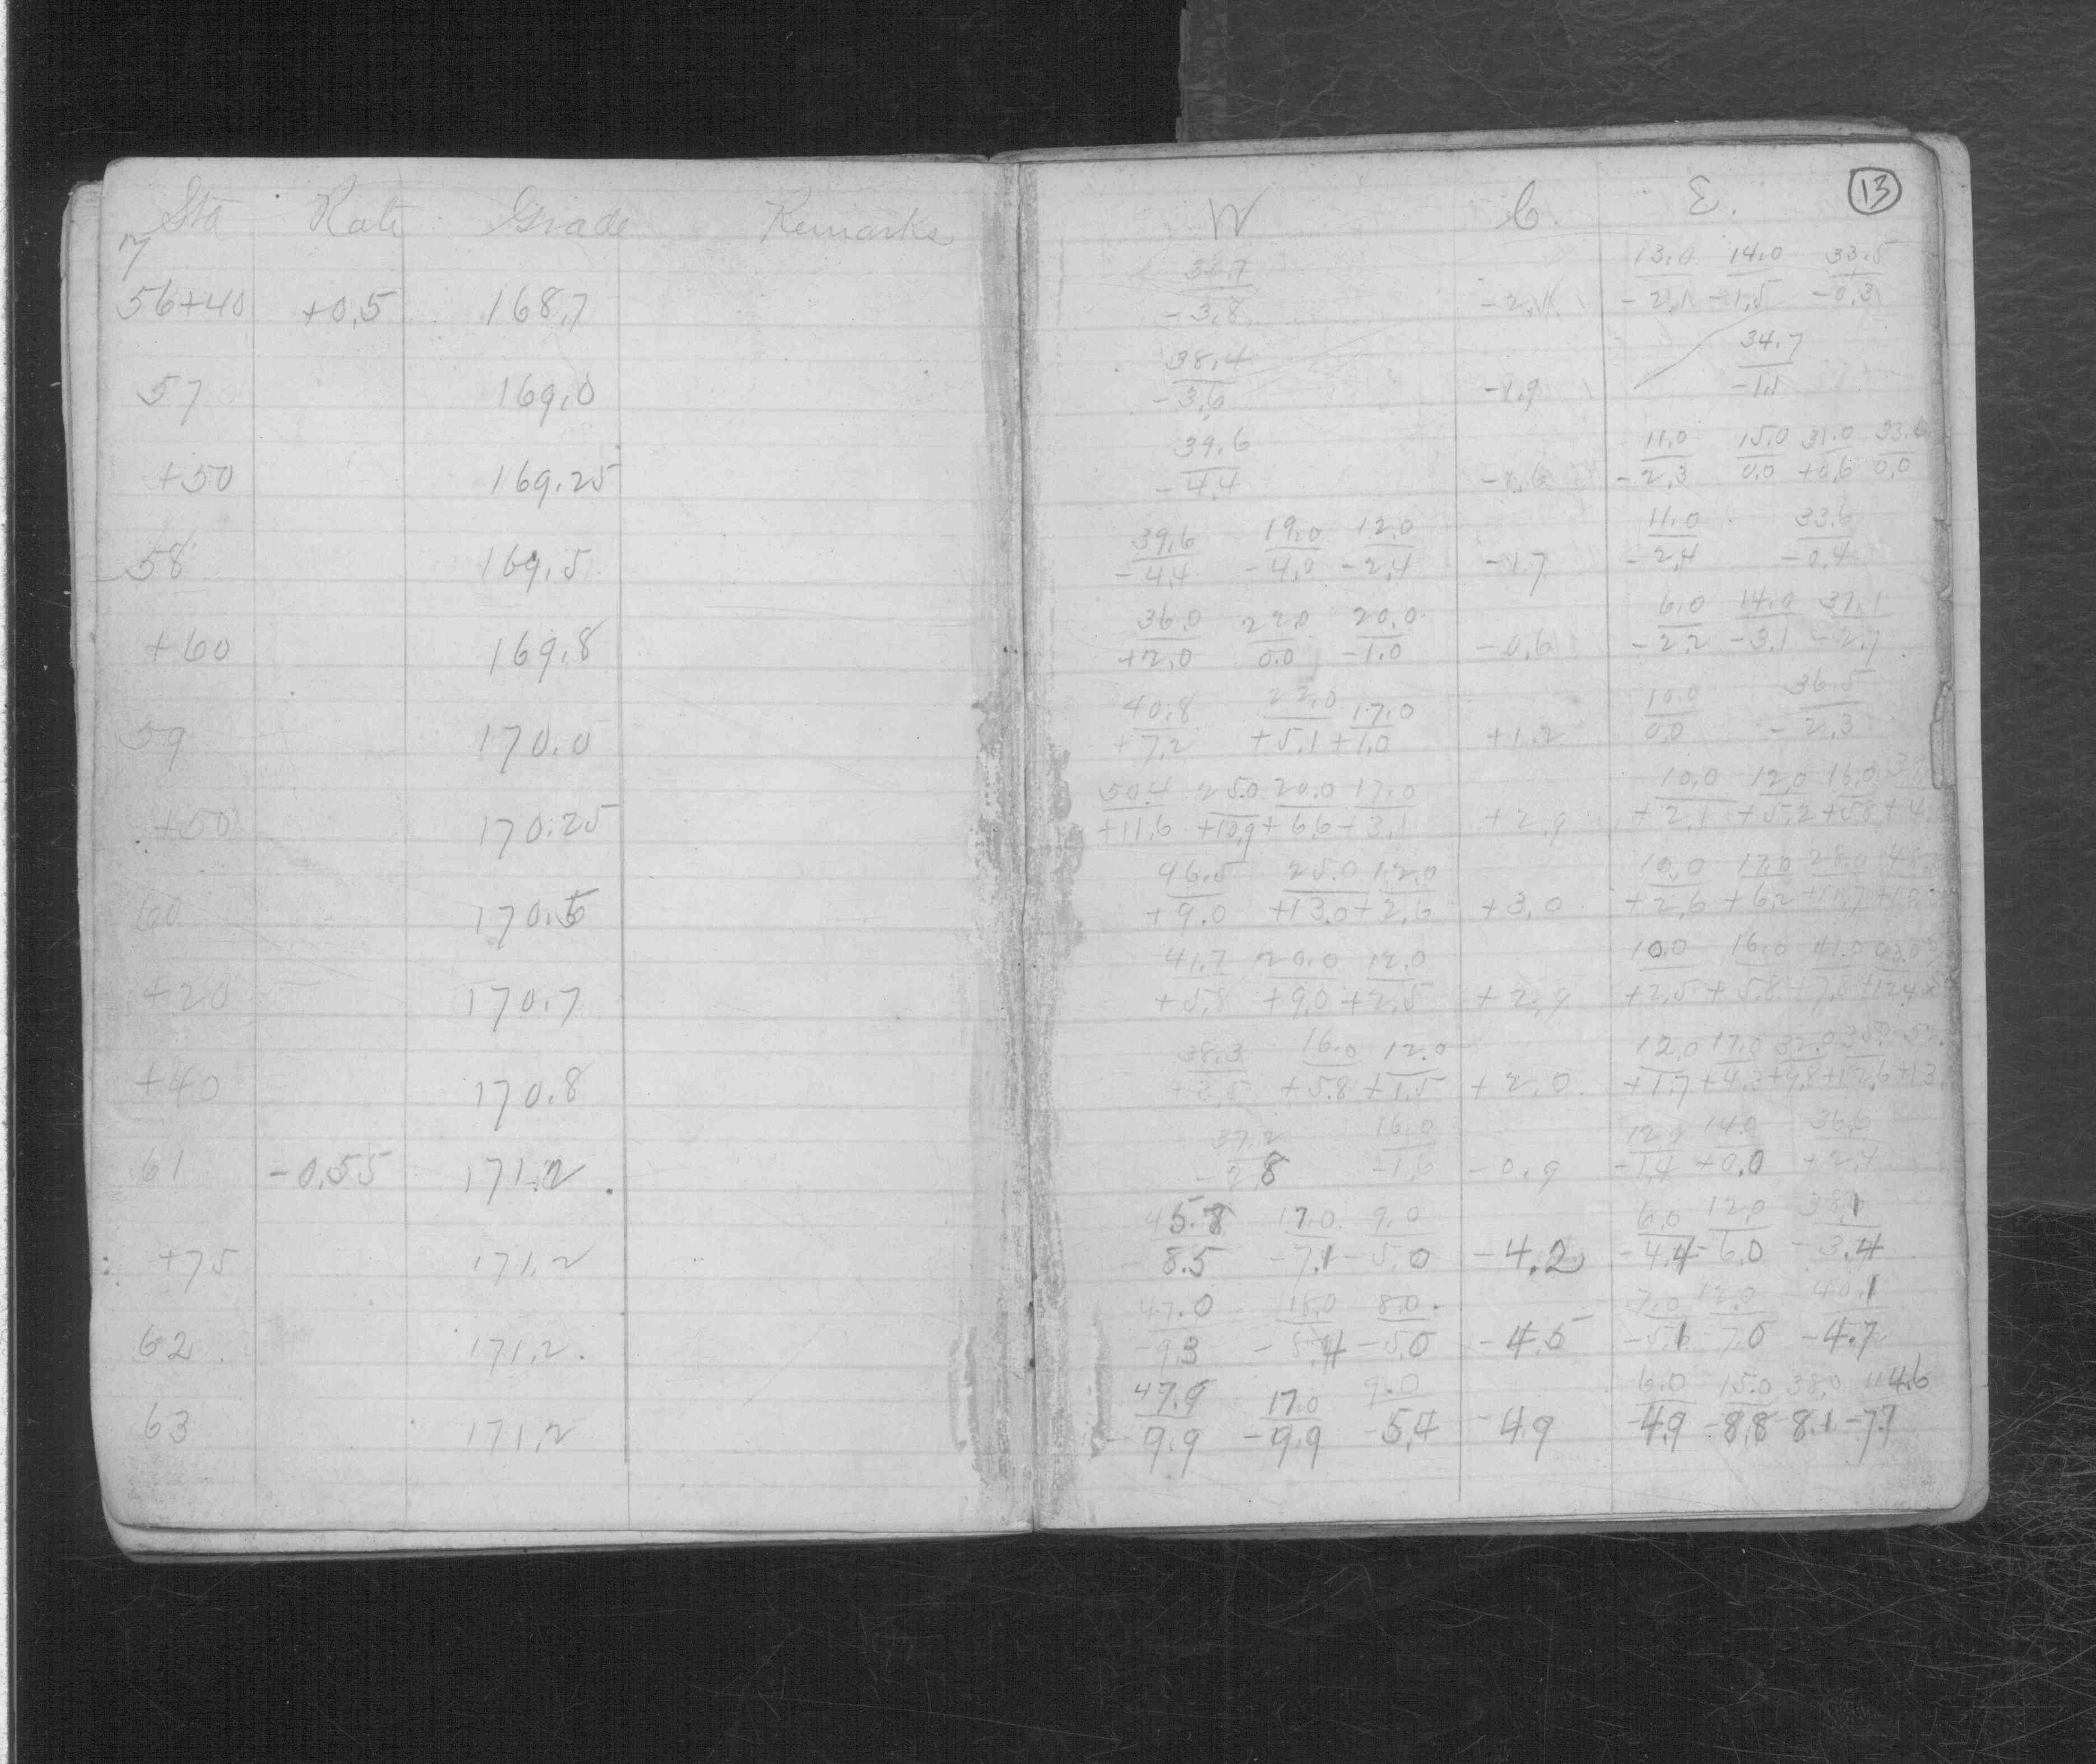 Sta Rate Grade Remarks
7
56+40 +0.5 168.7
57 169.0
+50 169.25
58 169.5
+60 169.8
59 170.0
+50 170.25
60 170.5
+20 170.7
+40 170.8
61 -0.55 171.2
+75 171.2
62 171.2
63 171.2
W C. E. 13
13.0 14.0 33.5
-3.8 -2.1 -2.1 -1.5 -0.3
38.4 34.7
-3.6 -1.9 -1.1
39.6 11.0 15.0 31.0 33.0
-4.4 -1.6 -2.3 0.0 +0.6 0.0
39.6 19.0 12.0 11.0 33.6
-4.4 -4.0 -2.4 -1.7 -2.4 -0.4
36.0 22.0 20.0 6.0 14.0 37.1
+2.0 0.0 -1.0 -0.6 -2.2 -3.1 -2.7
40.8 22.0 17.0 10.0 36.5
+7.2 +5.1 +1.0 +1.2 0.0 -2.3
50.4 25.0 20.0 17.0 10.0 12.0 16.0
+11.6 +10.9 +6.6 +3.1 +2.9 +2.1 +5.2 +5.8 +4.
46.5 25.0 12.0 10.0 17.0 28.0
+9.0 +13.0 +2.6 +3.0 +2.6 +6.2 +11.7
41.7 20.0 12.0 10.0 16.0 41.0
+5.8 +9.0 +2.5 +2.9 +2.5 +5.8 +7.0 +12.4
38.3 16.0 12.0 12.0 17.0 32.0 35.0
+3.5 +5.8 +1.5 +2.0 +1.7 +4.3 +9.8 +12.6 +13.
37.2 16.0 12.0 14.0 36.6
-2.8 -1.6 -0.9 -1.4 +0.0 +2.4
45.8 17.0 9.0 6.0 12.0 38.1
8.5 -7.1 -5.0 -4.2 -4.4 -6.0 -3.4
47.0 18.0 8.0 7.0 12.0 40.1
-9.3 -8.4 -5.0 -4.5 -5.1 -7.0 -4.7
47.9 17.0 9.0 6.0 15.0 38.0 44.6
-9.9 -9.9 -5.4 -4.9 -4.9 -8.8 8.1 -7.7